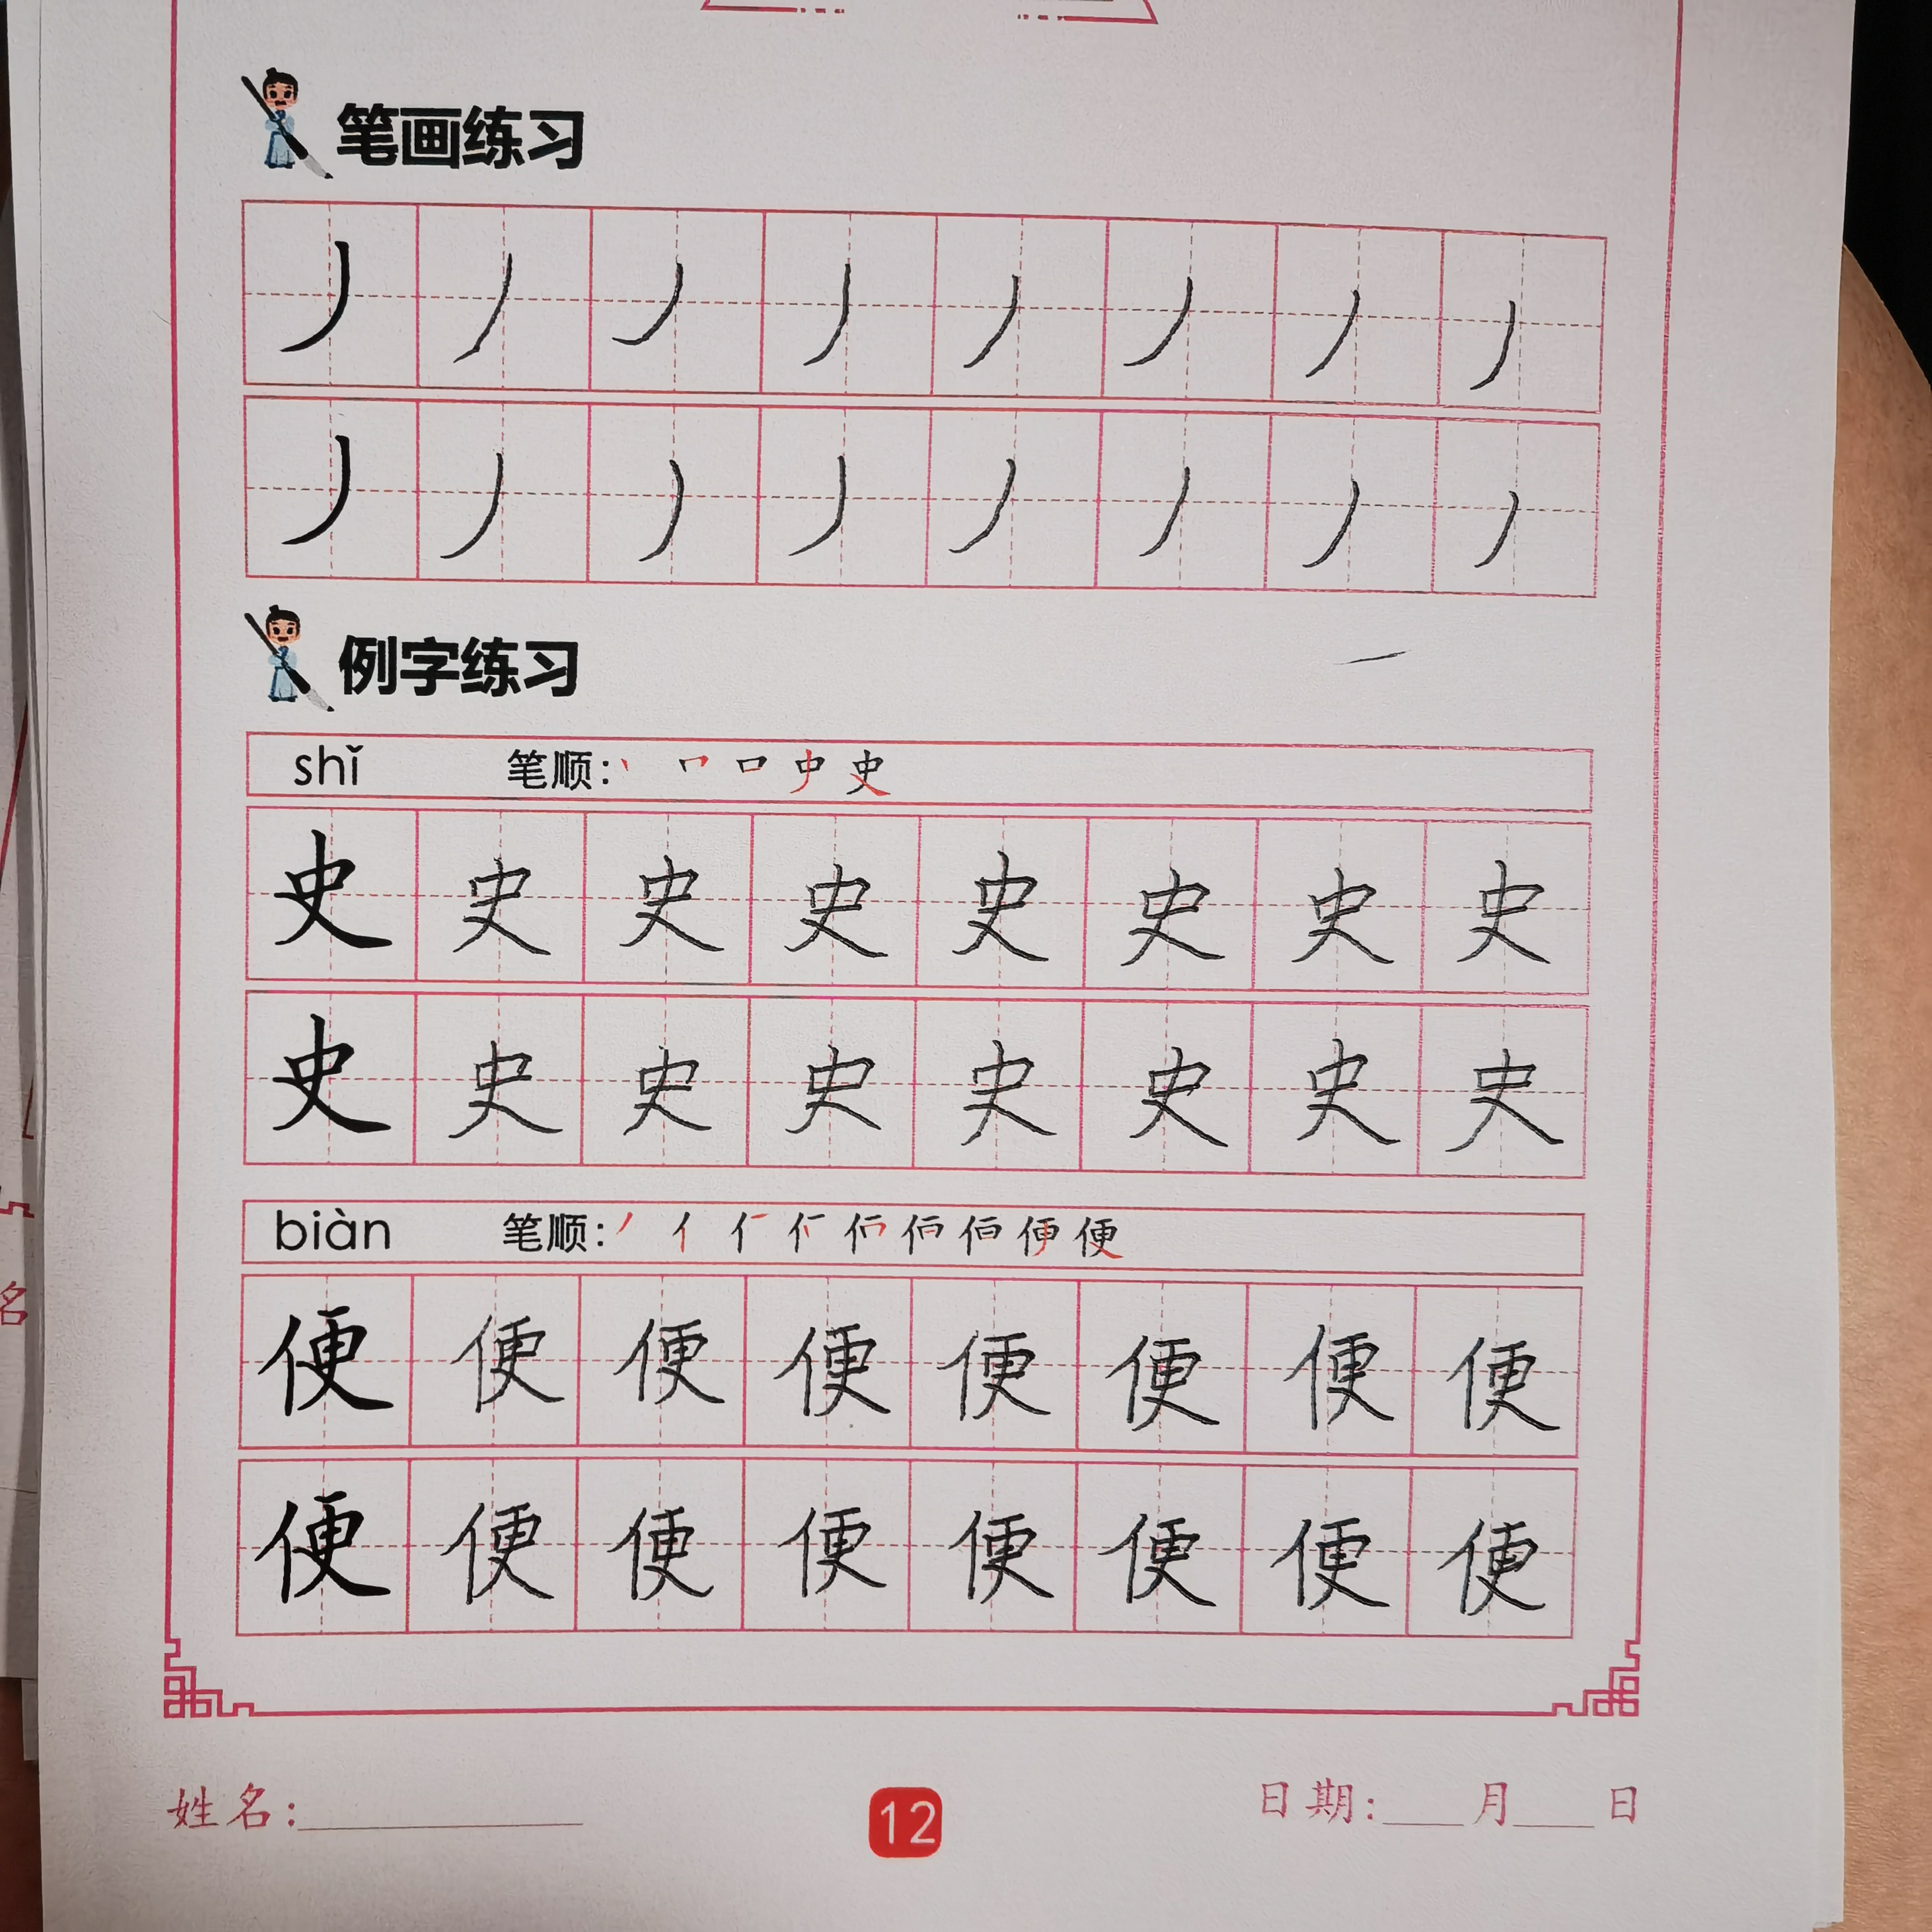 笔画练习
丿 丿 丿 丿 丿 丿 丿 丿
丿 丿 丿 丿 丿 丿 丿 丿
例字练习
shǐ 笔顺: 史
史 史 史 史 史 史 史 史
史 史 史 史 史 史 史 史
biàn 笔顺: 丿 亻 便
便 便 便 便 便 便 便 便
便 便 便 便 便 便 便 便
名
姓名: 12 日期: 月 日